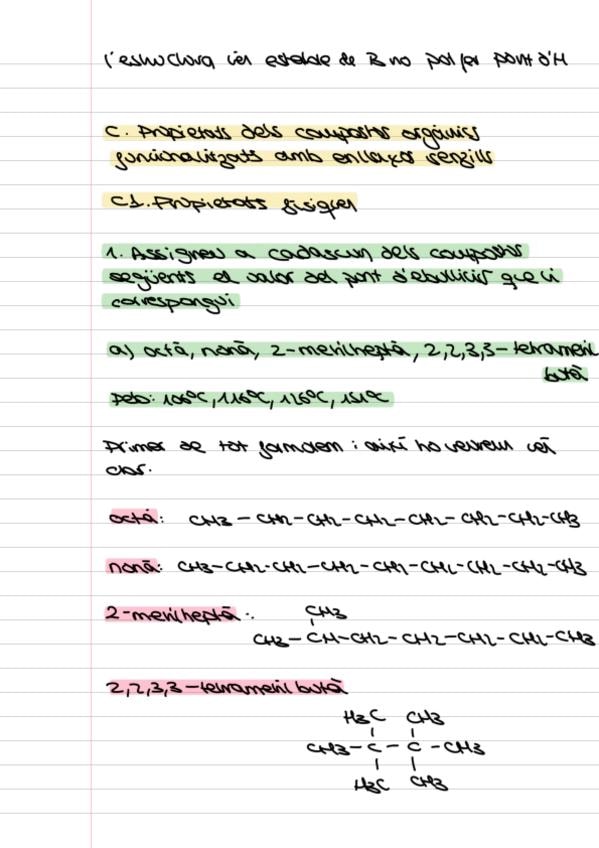 l'estructura
C. Propietats dels compostos orgànics
funcionalitzats amb enllaços senzills
C1. Propietats físiques
1. Assigneu a cadascun dels compostos
següents el valor del punt d'ebullició que li
correspongui
a) octà, nonà, 2-metilheptà, 2,2,3,3-tetrametil
butà
Peb: 106ºC, 116ºC, 126ºC, 151ºC
Primer de tot formulem i així ho veurem
clar.
octà: CH3-CH2-CH2-CH2-CH2-CH2-CH2-CH3
nonà: CH3-CH2-CH2-CH2-CH2-CH2-CH2-CH2-CH3
2-metilheptà: CH3
CH3-CH-CH2-CH2-CH2-CH2-CH3
2,2,3,3-tetrametilbutà
H3C CH3
CH3-C-C-CH3
H3C CH3